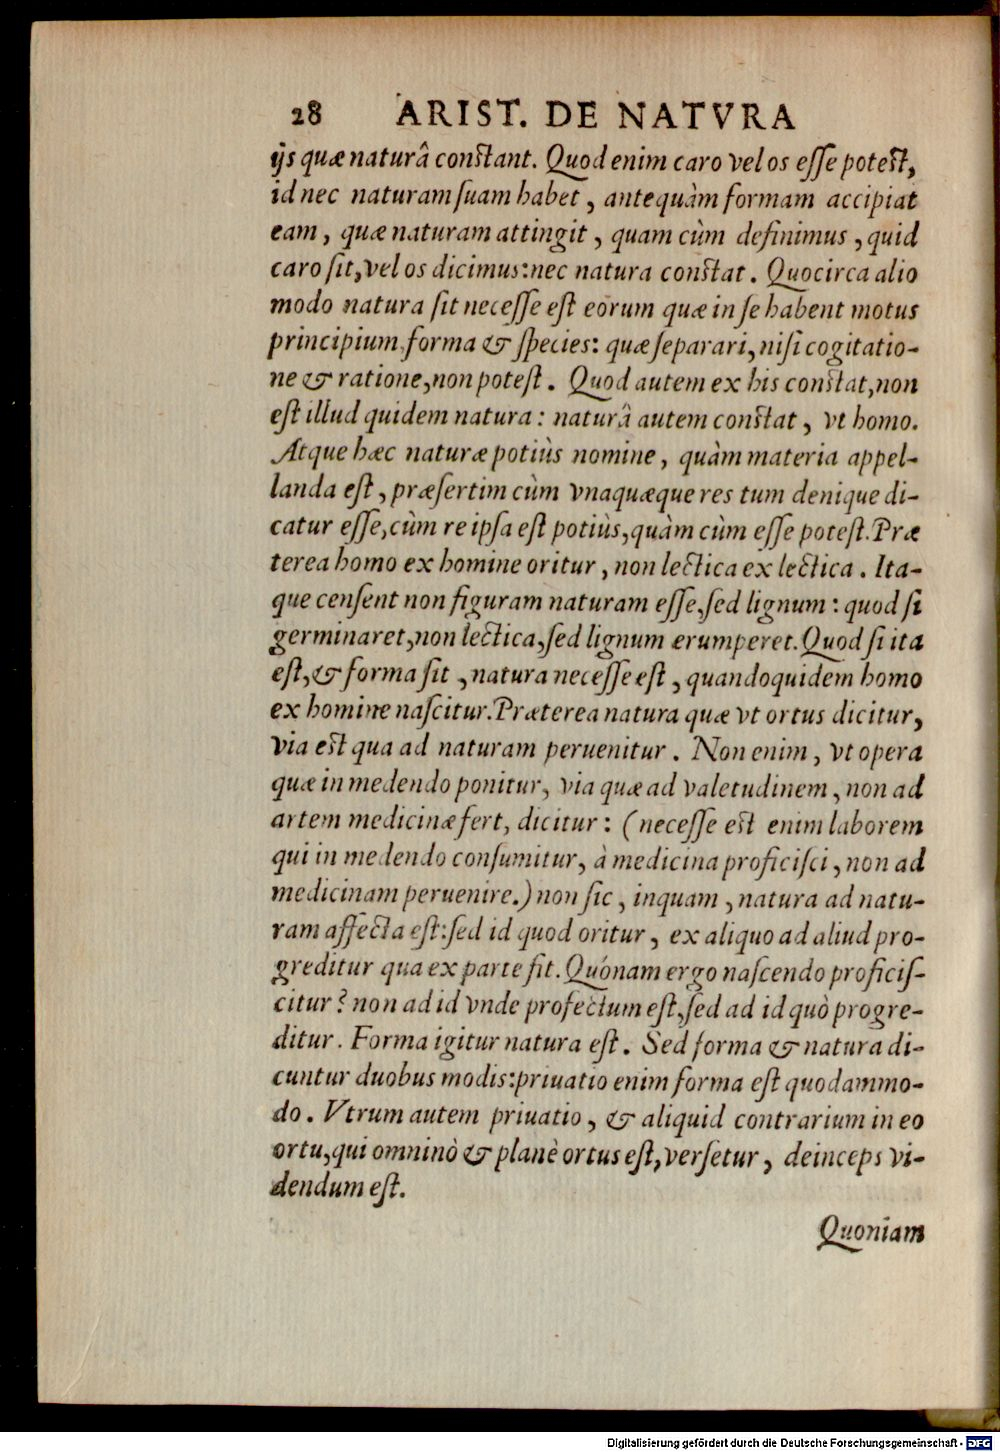 28 ARIST. DE NATVRA
ijs quæ naturâ constant. Quod enim caro vel os esse potest,
id nec naturam suam habet, antequàm formam accipiat
eam, quæ naturam attingit, quam cùm definimus, quid
caro sit, vel os dicimus: nec natura constat. Quocirca alio
modo natura sit necesse est eorum quæ in se habent motus
principium, forma & species: quæ separari, nisi cogitatio-
ne & ratione, non potest. Quod autem ex his constat, non
est illud quidem natura: naturâ autem constat, vt homo.
Atque hæc naturæ potiùs nomine, quàm materia appel-
landa est, præsertim cùm vnaquæque res tum denique di-
catur esse, cùm re ipsa est potiùs, quàm cùm esse potest. Præ
terea homo ex homine oritur, non lectica ex lectica. Ita-
que censent non figuram naturam esse, sed lignum: quod si
germinaret, non lectica, sed lignum erumperet. Quod si ita
est, & forma sit, natura necesse est, quandoquidem homo
ex homine nascitur. Præterea natura quæ vt ortus dicitur,
via est qua ad naturam peruenitur. Non enim, vt opera
quæ in medendo ponitur, via quæ ad valetudinem, non ad
artem medicinæ fert, dicitur: (necesse est enim laborem
qui in medendo consumitur, à medicina proficisci, non ad
medicinam peruenire.) non sic, inquam, natura ad natu-
ram affecta est: sed id quod oritur, ex aliquo ad aliud pro-
greditur qua ex parte fit. Quónam ergo nascendo proficis-
citur? non ad id vnde profectum est, sed ad id quò progre-
ditur. Forma igitur natura est. Sed forma & natura di-
cuntur duobus modis: priuatio enim forma est quodammo-
do. Vtrum autem priuatio, & aliquid contrarium in eo
ortu, qui omninò & planè ortus est, versetur, deinceps vi-
dendum est.
Quoniam
Digitalisierung gefördert durch die Deutsche Forschungsgemeinschaft - DFG